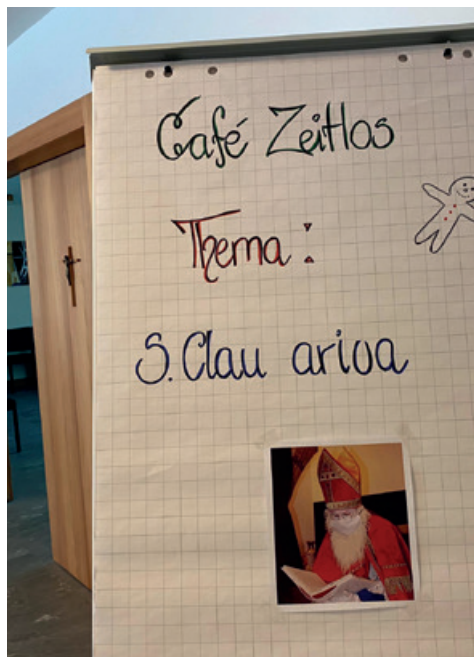 Café Zeitlos
Thema :
S. Clau ariva